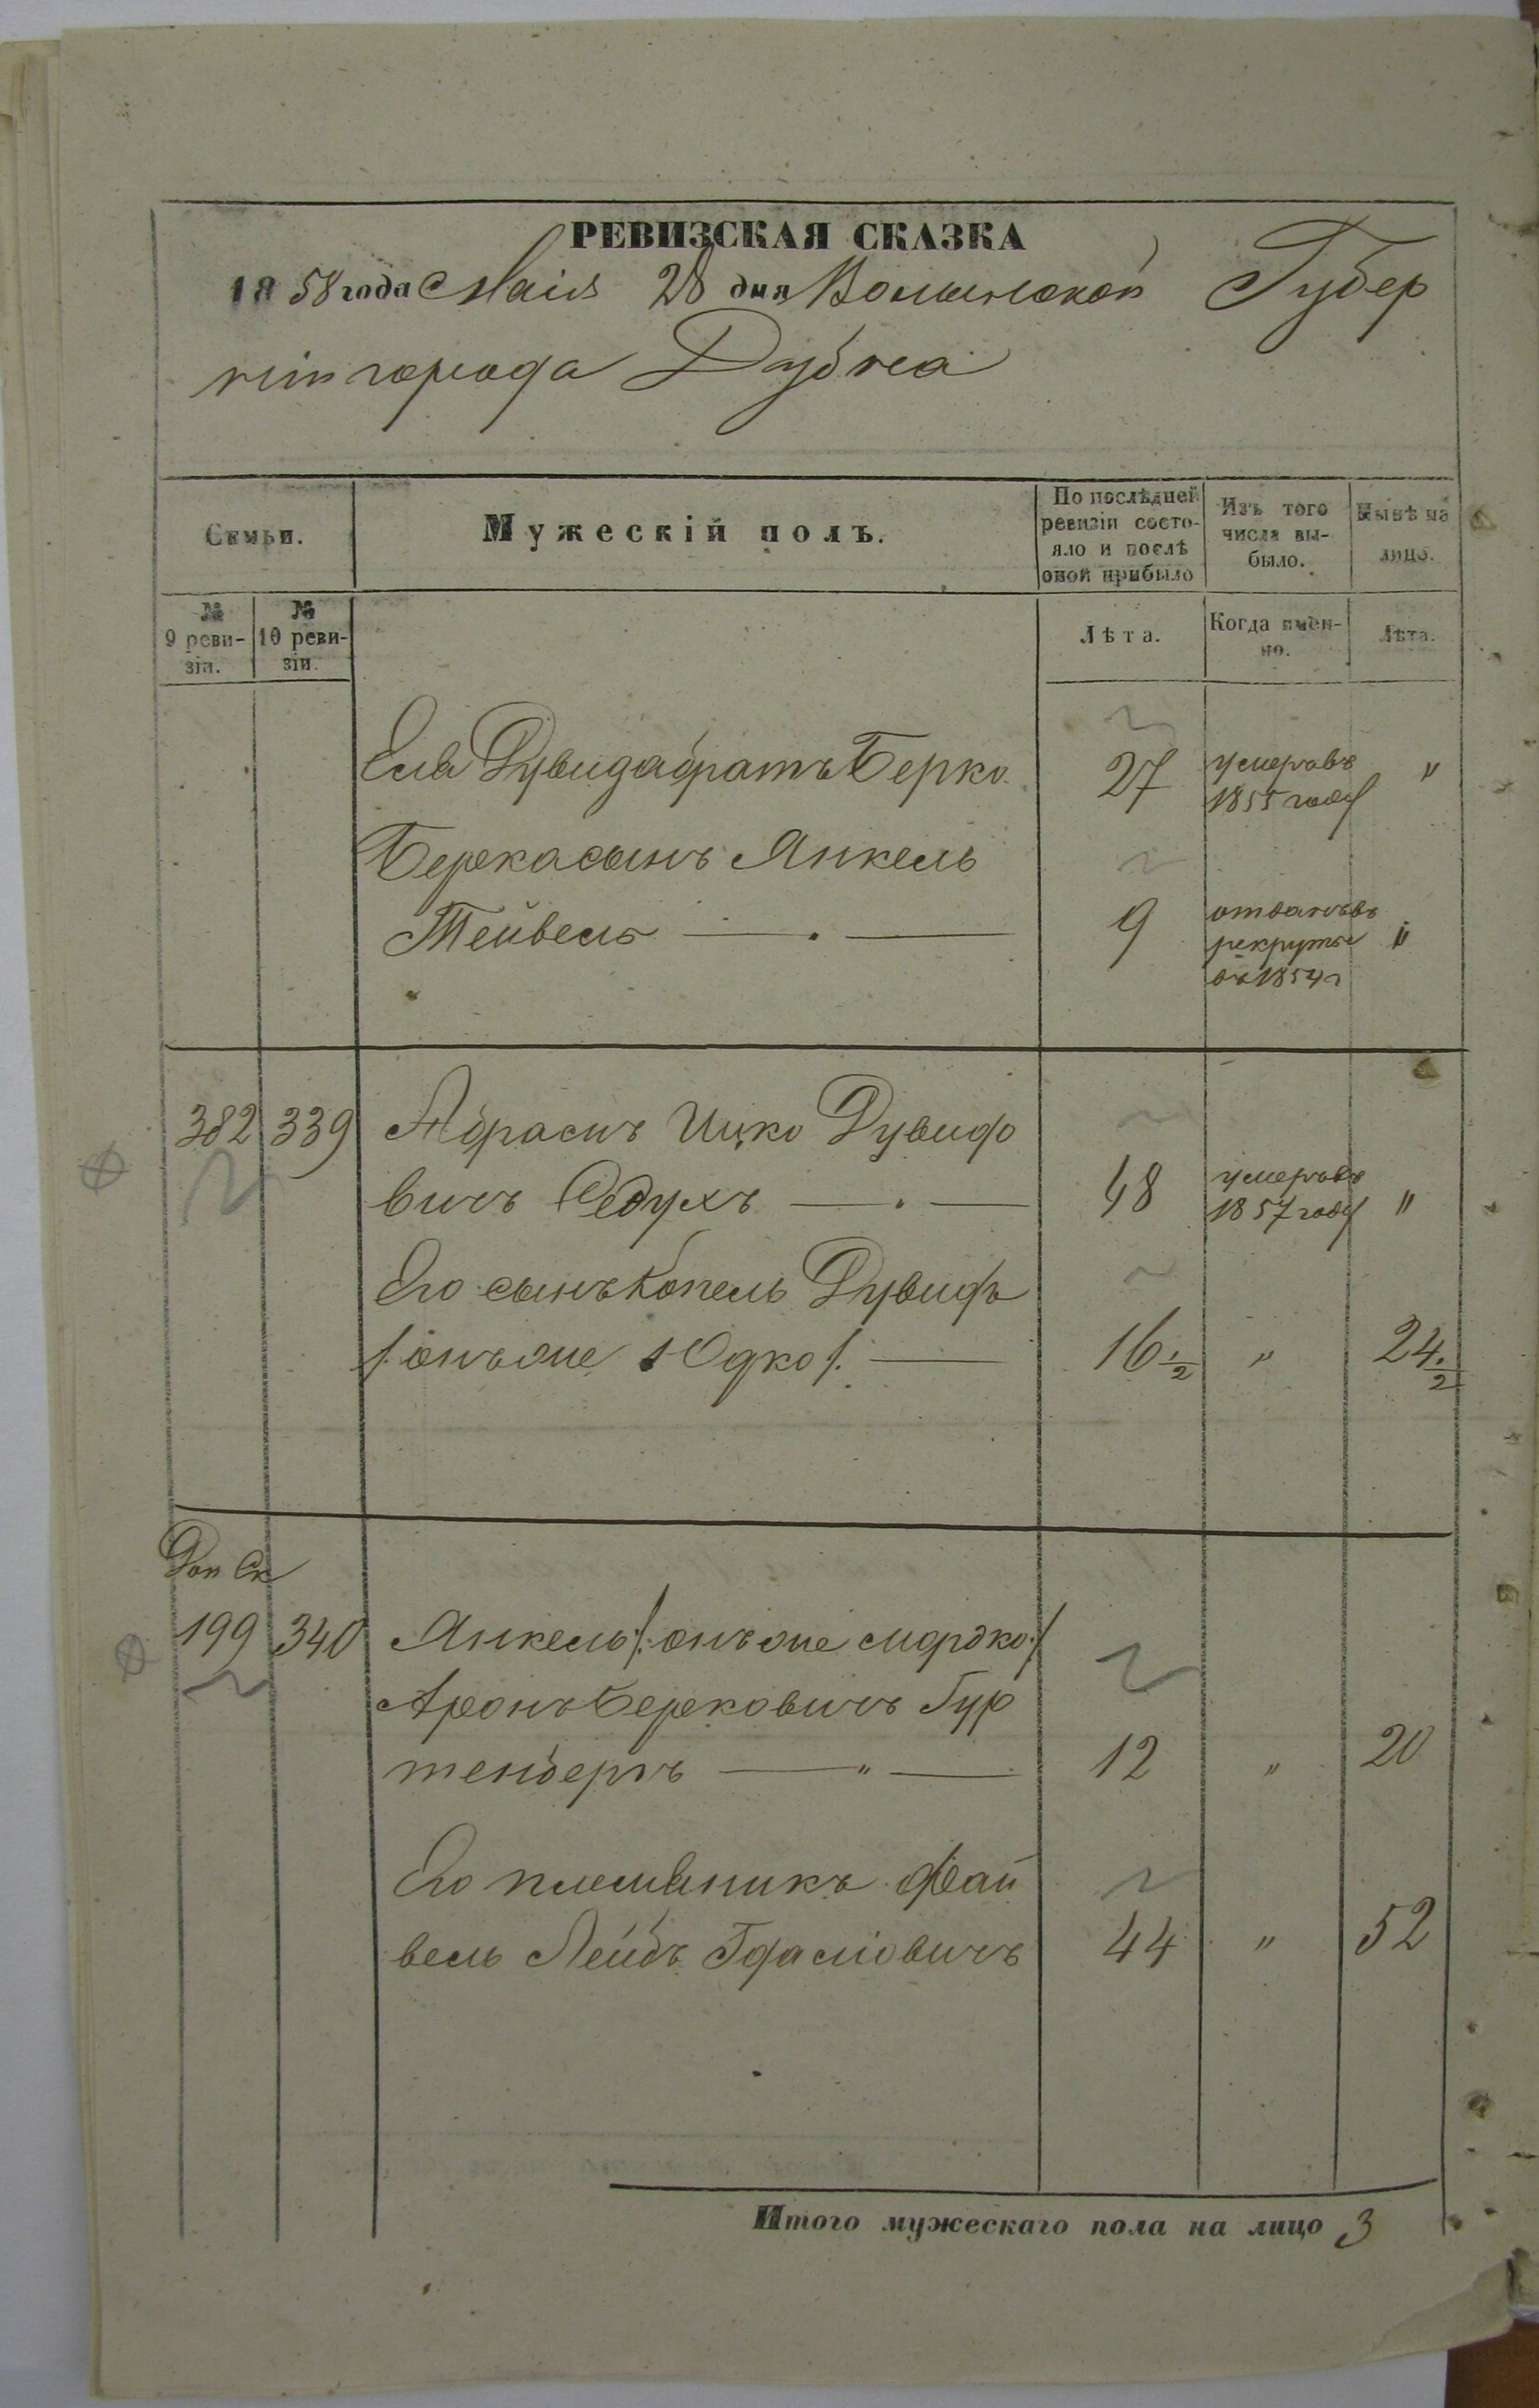 РЕВИЗСКАЯ СКАЗКА
1858 года Маія 28 дня Волынской Губер
ніи города Дубна
Семьи.
Мужескій полъ.
По послѣдней ревизіи состо-
яло и послѣ оной прибыло
Изъ того числа вы-
было.
Нынѣ на лицо.
№ 9 реви-
зіи.
№ 10 реви-
зіи.
Лѣта.
Когда имен-
но.
Лѣта.
Дувида братъ Берко 27 умеръ въ "
1855 году
Берка сынъ Янкель
Тейвель — . — 9 отданъ въ "
рекруты
въ 1854 г
382 339 Абрамъ Ицко Дувидо
вичъ — . — 48 умеръ въ "
1857 году
Его сынъ Копель Дувидъ
/:онъ же Юдко/: — 16 1/2 " 24 1/2
Доп Ск
199 340 Янкель /:онъ же Мордко:/
Аронъ Берковичъ Гур
тенбергъ — " — 12 " 20
Его племяникъ Фай
вель Лейбъ Гдаліовичъ 44 " 52
Итого мужескаго пола на лицо 3